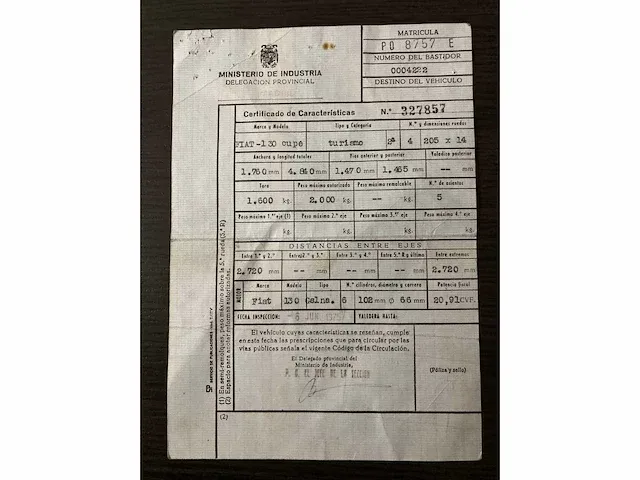 MATRICULA
PO 8757 E
NUMERO DEL BASTIDOR
0004222
DESTINO DEL VEHICULO
MINISTERIO DE INDUSTRIA
DELEGACION PROVINCIAL
Certificado de Características N.º 327857
Marca y Modelo Tipo y Categoría N.º y dimensiones ruedas
FIAT-130 cupe turismo 2ª 4 205 x 14
Anchura y longitud totales Vías anterior y posterior Voladizo posterior
1.760 mm 4.840 mm 1.470 mm 1.465 mm -- mm
Tara Peso máximo autorizado Peso máximo remolcable N.º de asientos
1.600 kg. 2.000 kg. -- kg. 5
Peso máximo 1.er eje (1) Peso máximo 2.º eje Peso máximo 3.er eje Peso máximo 4.º eje
kg. kg. kg. kg.
DISTANCIAS ENTRE EJES
Entre 1.º y 2.º Entre 2.º y 3.º Entre 3.º y 4.º Entre 5.ª R y último Entre extremos
2.720 mm -- mm -- mm -- mm 2.720 mm
MOTOR
Marca Modelo Tipo N.º cilindros, diámetro y carrera Potencia fiscal
Fiat 130 Gslna. 6 102 mm ⌀ 66 mm 20,91 CVF.
FECHA INSPECCION: -6 JUN. 1975 VALEDERA HASTA:
El vehículo cuyas características se reseñan, cumple
en esta fecha las prescripciones que para circular por las
vías públicas señala el vigente Código de la Circulación.
El Delegado provincial del
Ministerio de Industria,
P. D. EL JEFE DE LA SECCION
(Póliza y sello)
(1) En semi-remolques, peso máximo sobre la 5.ª rueda (5.ª R)
(2) Espacio para anotar reformas autorizadas.
(2)